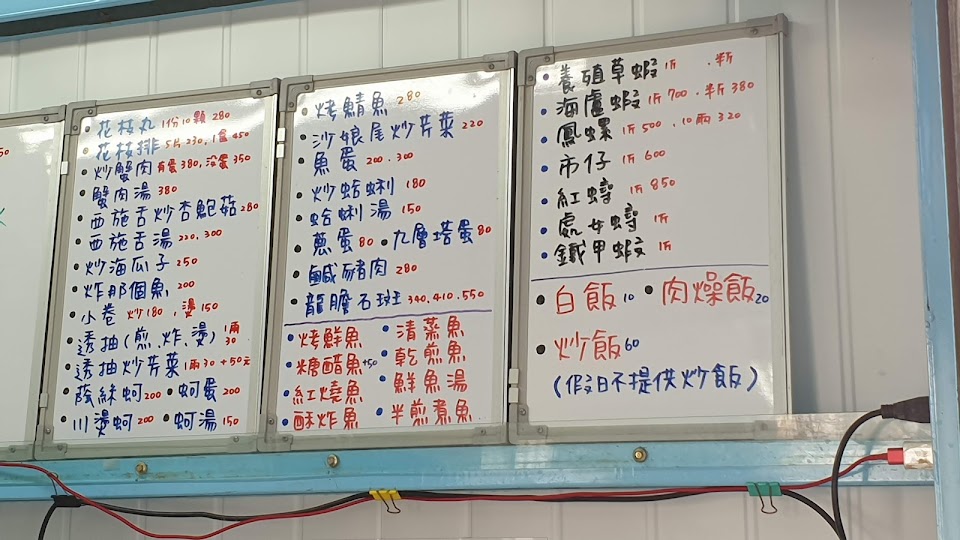 50
花枝丸 1份10顆 280
花枝排 5片230, 1盒450
炒蟹肉 有蛋380, 沒蛋350
蟹肉湯 380
西施舌炒杏鮑菇 280
西施舌湯 220, 300
炒海瓜子 250
炸那個魚 200
小卷 炒180, 燙150
透抽(煎、炸、燙) 1兩30
透抽炒芹菜 1兩30+50元
蔭絲蚵200 蚵蛋200
川燙蚵200 蚵湯150
烤鯖魚 280
沙娘尾炒芹菜 220
魚蛋 200.300
炒蛤蜊 180
蛤蜊湯 150
蔥蛋80 九層塔蛋80
鹹豬肉 280
龍膽石斑 340.410.550
烤鮮魚 清蒸魚
糖醋魚+50 乾煎魚
紅燒魚 鮮魚湯
酥炸魚 半煎煮魚
養殖草蝦 1斤 .半斤
海盧蝦 1斤700.半斤380
鳳螺 1斤500.10兩320
市仔 1斤600
紅蟳 1斤850
處女蟳 1斤
鐵甲蝦 1斤
白飯10 肉燥飯20
炒飯60
(假日不提供炒飯)